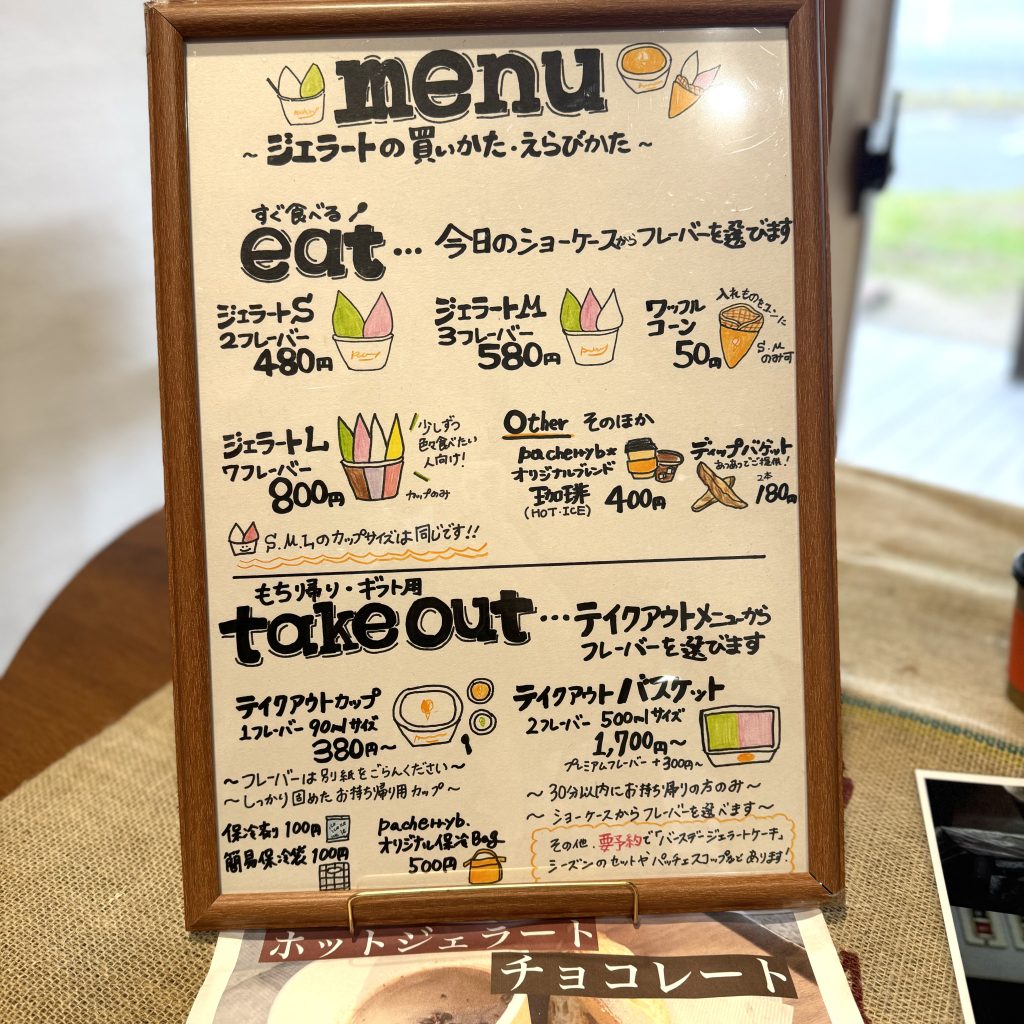 menu
～ジェラートの買いかた・えらびかた～
すぐ食べる
eat… 今日のショーケースからフレーバーを選びます
ジェラートS
2フレーバー
480円
ジェラートM
3フレーバー
580円
ワッフル
コーン
50円
入れものをコーンに
S.M
のみです
ジェラートL
7フレーバー
800円
少しずつ
色々食べたい
人向け!
カップのみ
Other そのほか
オリジナルブレンド
珈琲
(HOT・ICE)
400円
ディップバゲット
あつあつでご提供!
2本
180円
S.M.Lのカップサイズは同じです!!
もち帰り・ギフト用
take out…テイクアウトメニューから
フレーバーを選びます
テイクアウトカップ
1フレーバー 90mlサイズ
380円～
～フレーバーは別紙をごらんください～
～しっかり固めたお持ち帰り用カップ～
保冷剤 100円
簡易保冷袋 100円
オリジナル保冷Bag
500円
テイクアウトバスケット
2フレーバー 500mlサイズ
1,700円～
プレミアムフレーバー +300円～
～30分以内にお持ち帰りの方のみ～
～ショーケースからフレーバーを選べます～
その他、要予約で「バースデージェラートケーキ」
シーズンのセットやパッチェスコップなどあります!
ホットジェラート
チョコレート